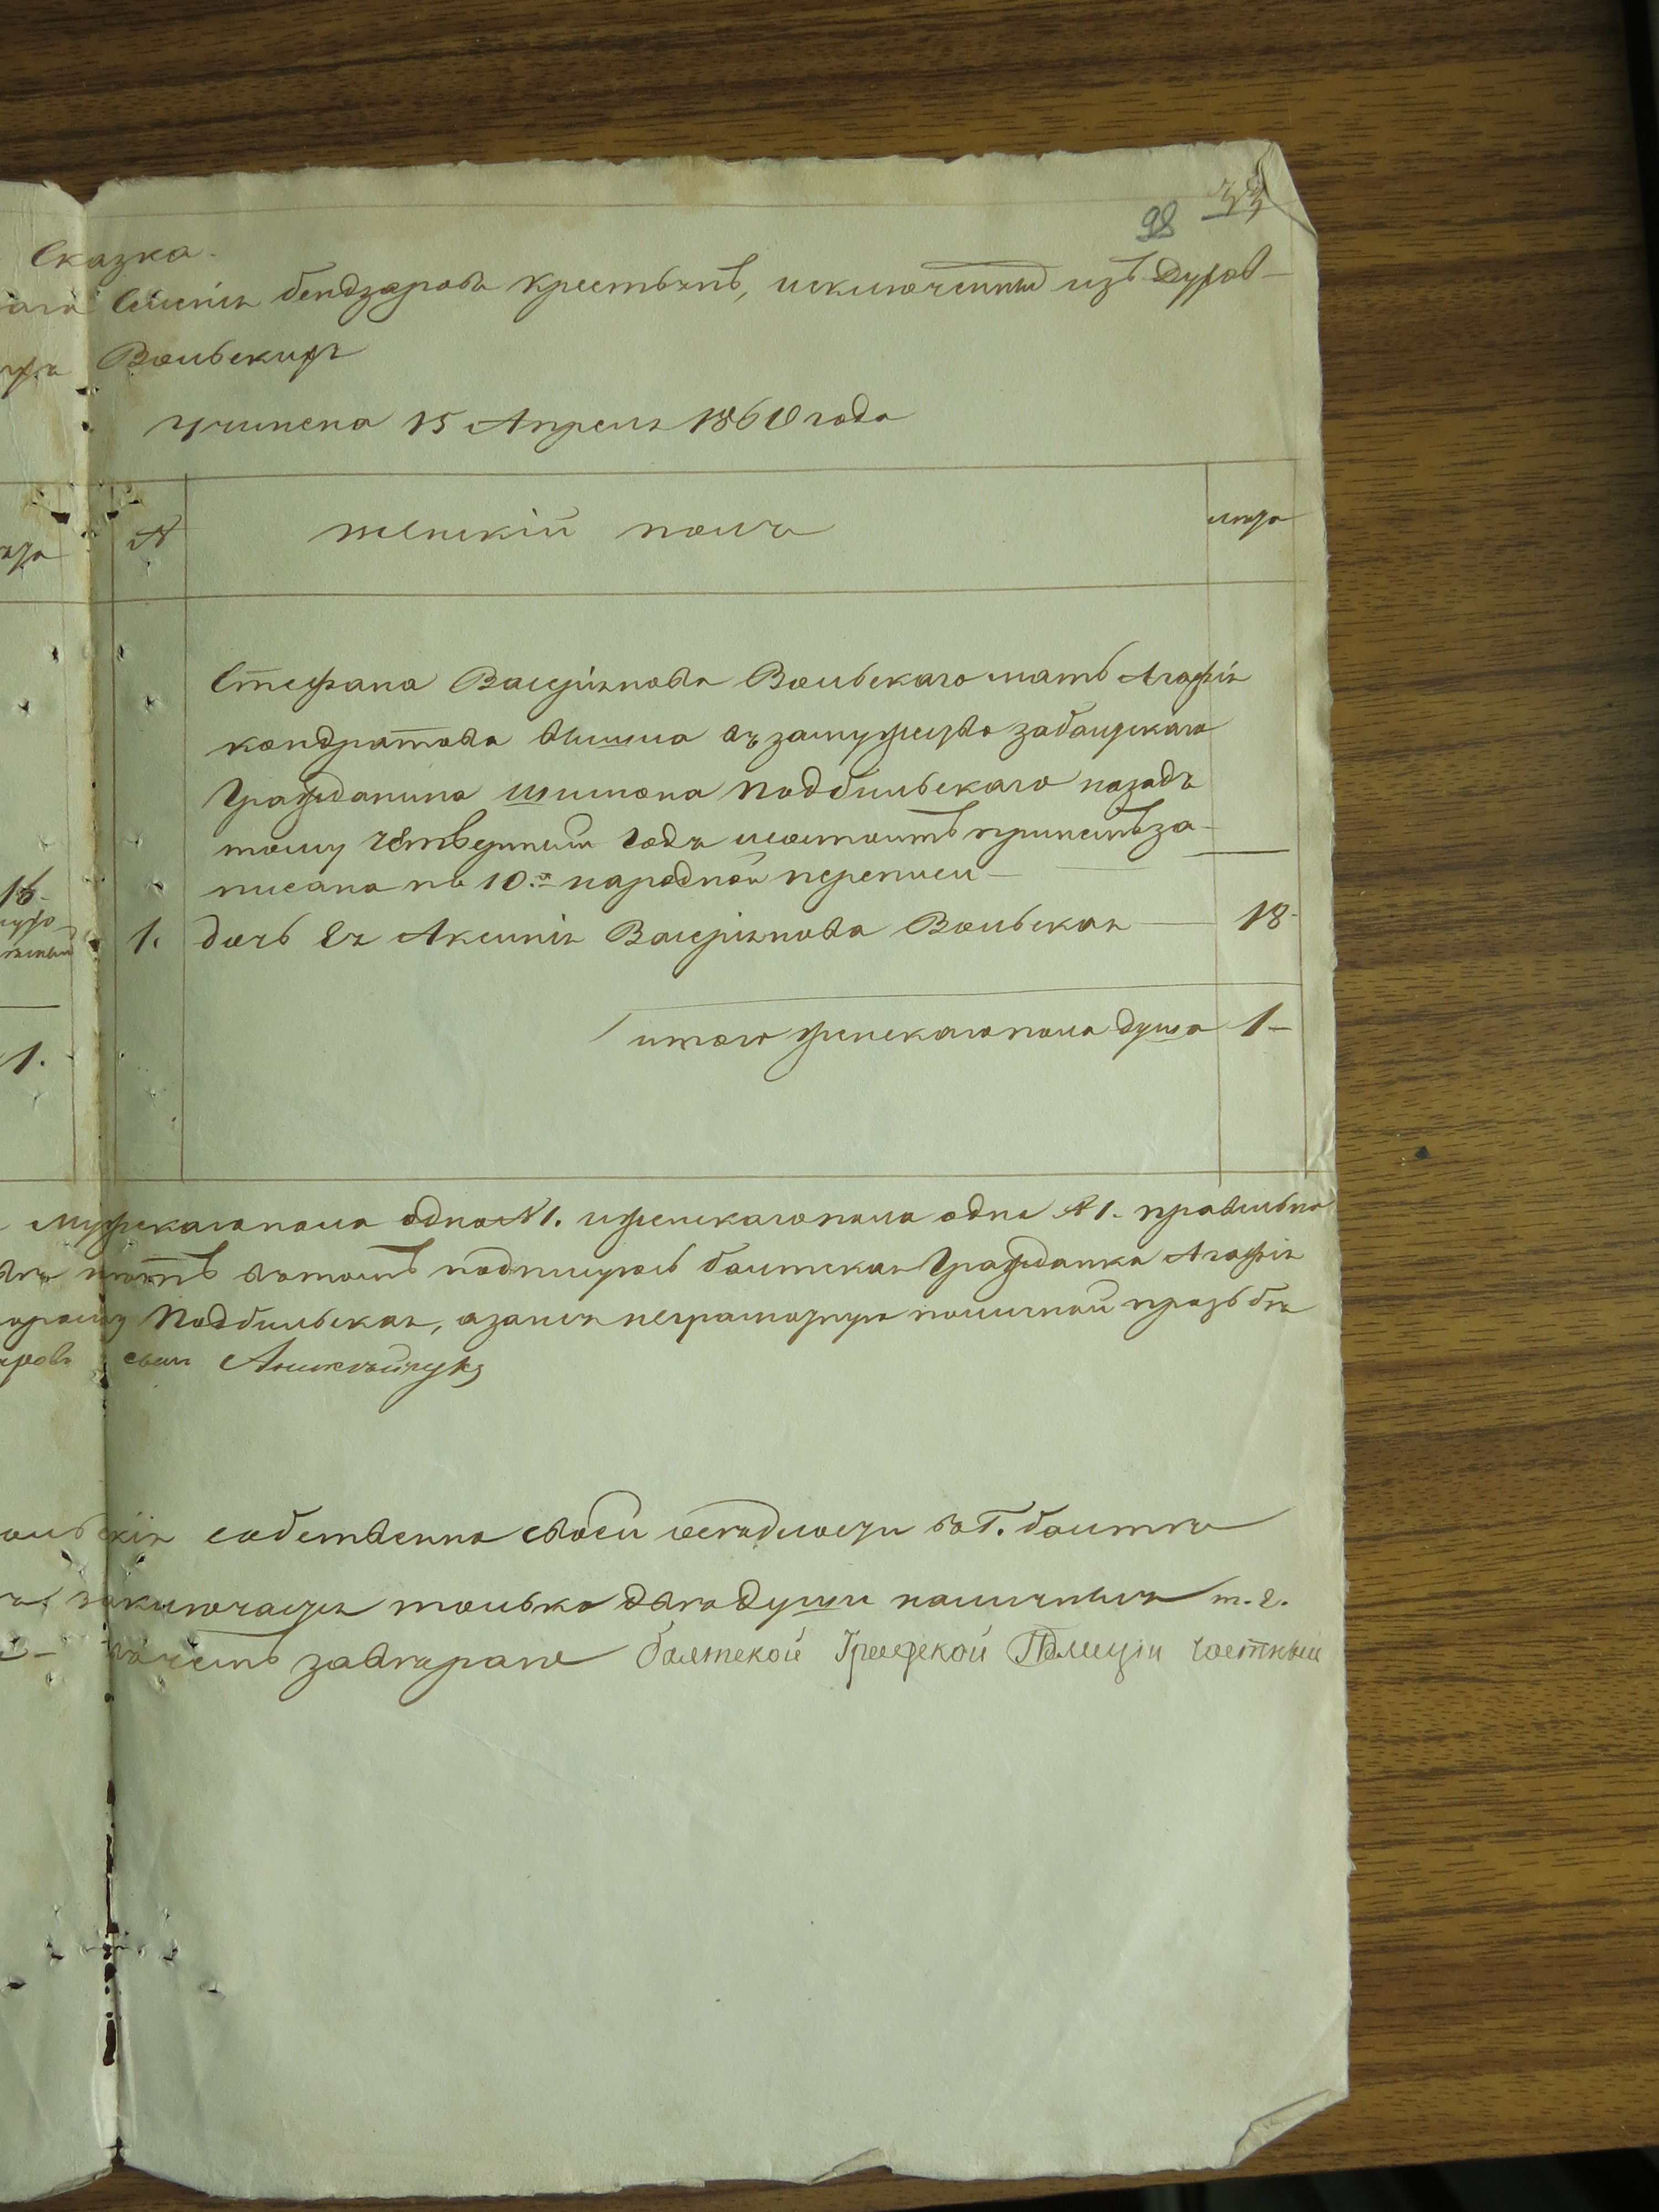 98
Сказка.
Селенія бендзарова крестьянъ, исключенныхъ изъ Духов-
Вольскихъ
Учинена 15 Апреля 1860 года
№ женскій полъ лѣта
Стефана Валеріянова Вольскаго мать Агафія
кондратова вышла въ замужество за балтскаго
Гражданина шимона Подбильскаго назадъ
тому четвертый годъ и состоитъ при немъ за-
писана по 10.й народной переписи
16-
1. дочь Ея Аксинія Валеріянова Вольская 18-
итого женскаго пола душа 1-
1.
мужскаго пола одна №1. и женскаго пола одна №1. правильно
въ томъ подпишусь балтская Гражданка Агафія
Подбильская, а за нея неграмотную по личной прозьбѣ
собственно своей осѣдлости въ Г. балтѣ
заключается только двѣ души наличныхъ т. е.
въ чемъ завѣряю балтской Градской Полиціи Частный